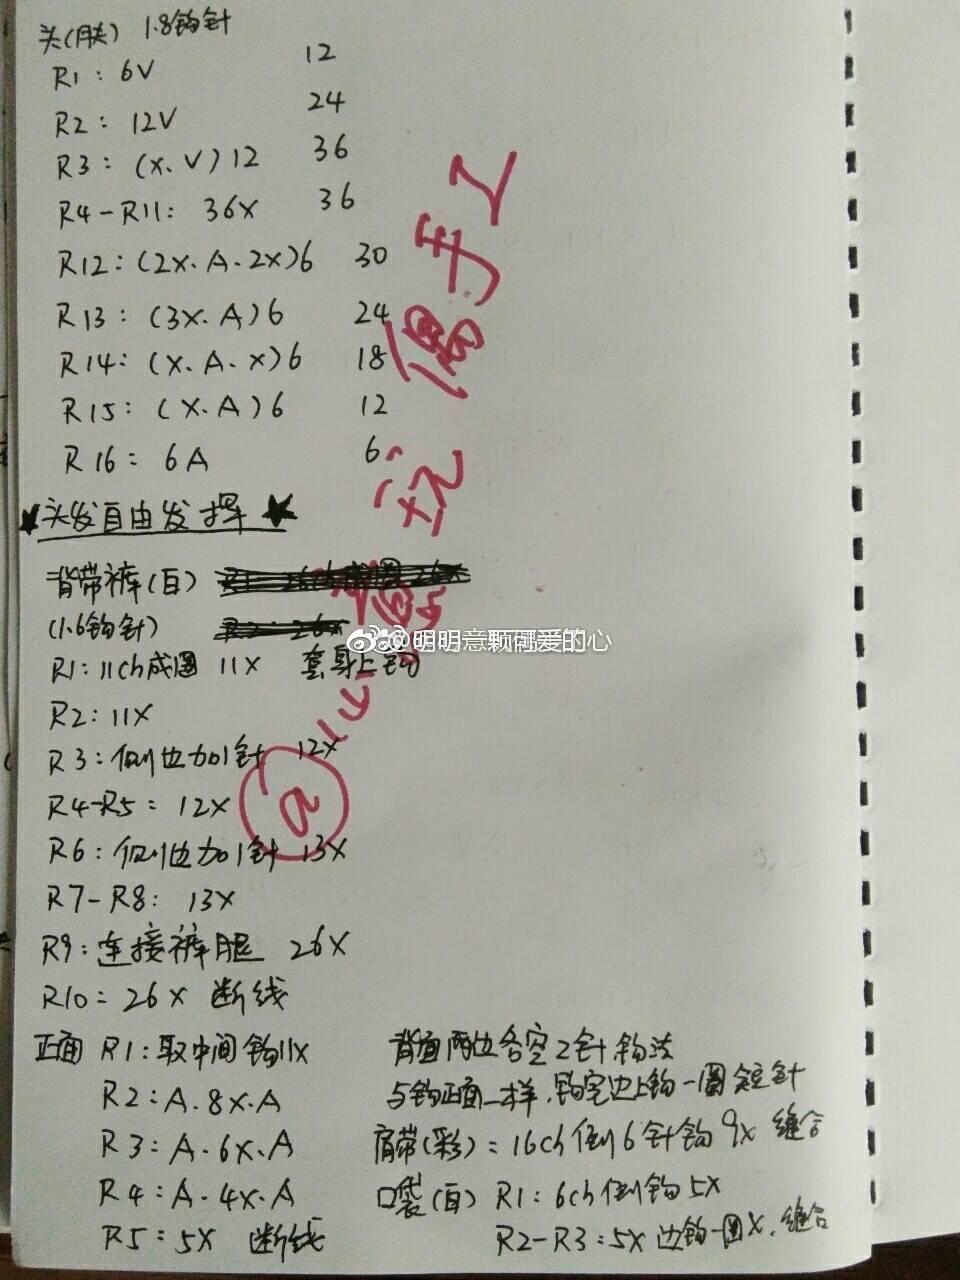 头(肤) 1.8钩针
R1: 6V 12
R2: 12V 24
R3: (X、V)12 36
R4-R11: 36X 36
R12: (2X、A、2X)6 30
R13: (3X、A)6 24
R14: (X、A、X)6 18
R15: (X、A)6 12
R16: 6A 6
★头发自由发挥★
背带裤(白)
(1.6钩针)
R1: 11ch成圈 11X 套身上
R2: 11X
R3: 侧边加1针 12X
R4-R5: 12X
R6: 侧边加1针 13X
R7-R8: 13X
R9: 连接裤腿 26X
R10: 26X 断线
正面 R1: 取中间钩11X
R2: A、8X、A
R3: A、6X、A
R4: A、4X、A
R5: 5X 断线
背面两边各空2针,钩法
与钩正面一样,钩完边上钩一圈短针
肩带(彩): 16ch 倒6针钩9X 缝合
口袋(白) R1: 6ch倒钩5X
R2-R3: 5X 边钩一圈X,缝合
玩偶手工
@明明意颗可爱的心